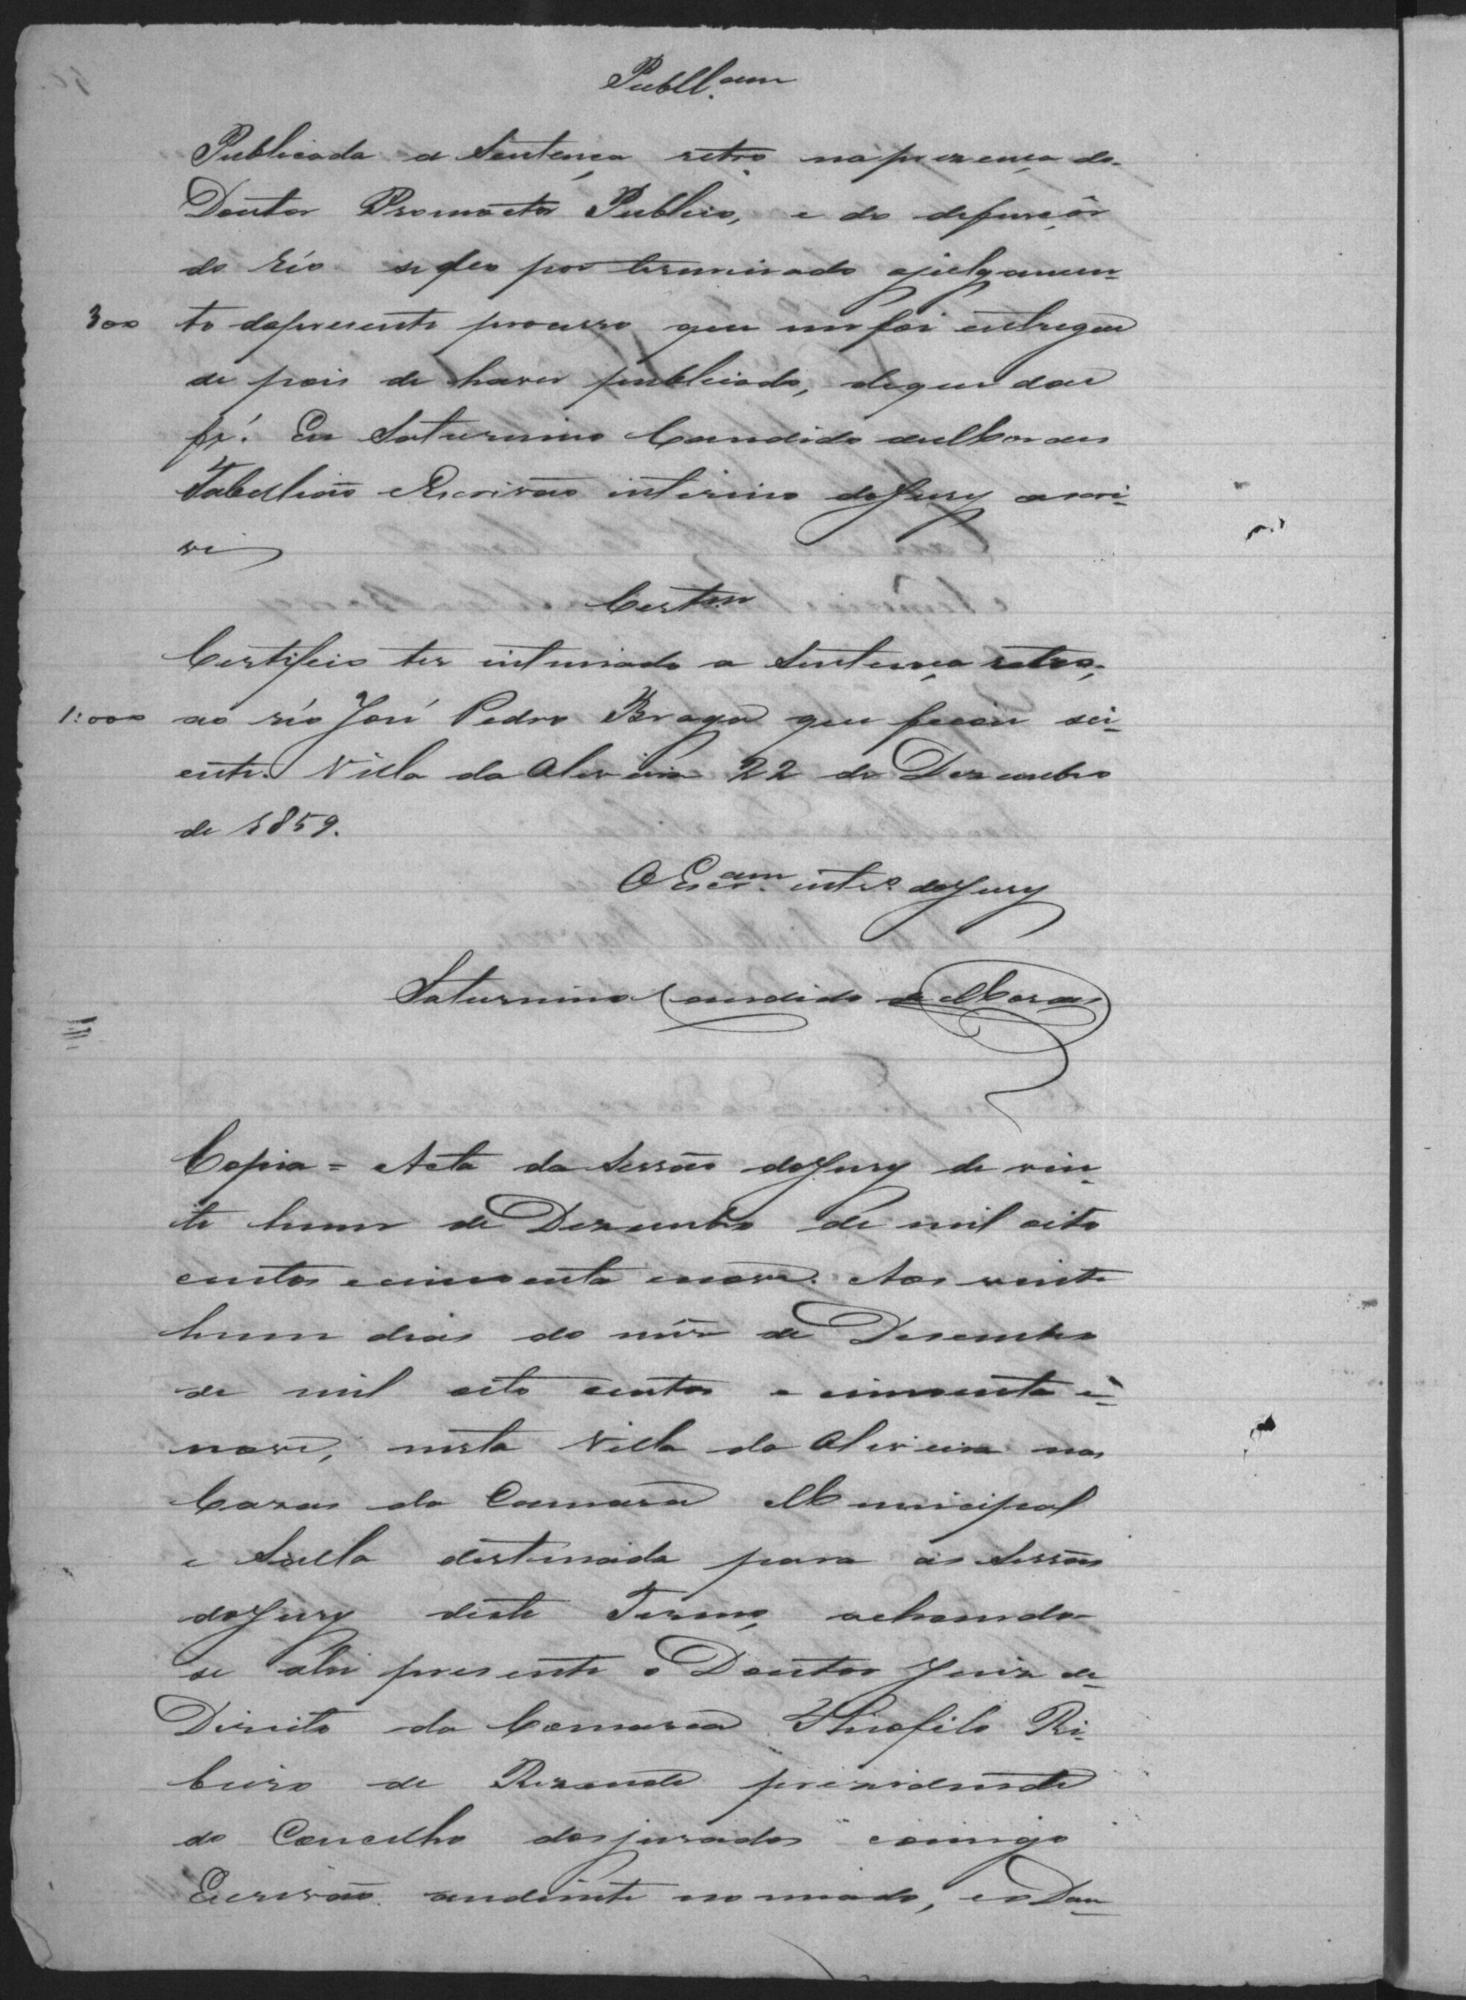 Publl.am
Publicada a Sentença retro na prezença do
Doutor Promoctor Publico, e do defençor
do réo se deo por terminado o julgamen-
300 to do presente processo que me foi entregue
de pois de haver publicado, de que dou
fé. Eu Saturnino Candido de Moraes
Tabellião Escrivão interino do Jury escri-
vi
Certam
Certifico ter intimado a Sentença retro,
1:000 ao réo José Pedro Braga que ficou sci-
ente. Villa da Oliveira 22 de Dezembro
de 1859.
O Escr.am intr.o do Jury
Saturnino Candido de Moraes
Copia = Acta da Sessão do Jury de vin-
te hum de Dezembro de mil oito
centos e cincoenta e nove. Aos vinte
hum dias do mêz de Desembro
de mil oito centos e cincoenta e
nove, nesta Villa da Oliveira nas
Cazas da Camara Municipal
e Salla destinada para as Sessões
do Jury deste Termo, achando
se ahi presente o Doutor Juiz de
Direito da Comarca Thiofilo Ri-
beiro de Rezende prezidente
do Concelho dos jurados comigo
Escrivão andiente nomiado, e o Dou-